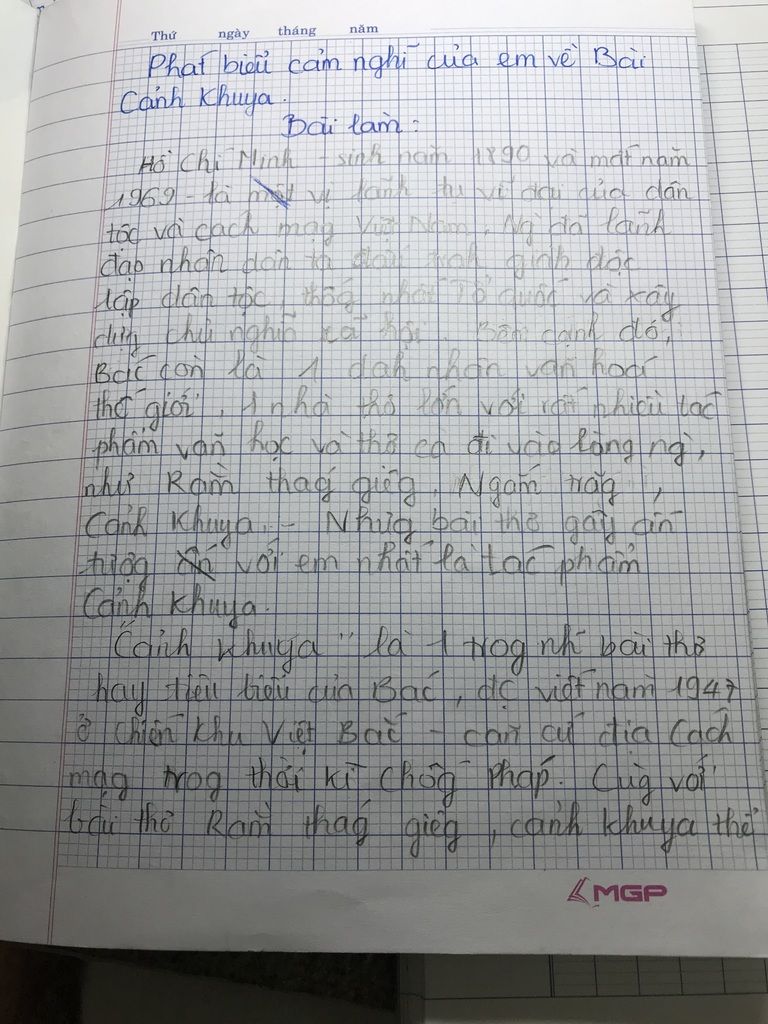 Thứ ngày tháng năm
Phát biểu cảm nghĩ của em về Bài
Cảnh Khuya.
Bài làm:
Hồ Chí Minh - sinh năm 1890 và mất năm
1969 - là vị lãnh tụ vĩ đại của dân
tộc và cách mạg Việt Nam. Ng` đã lãnh
đạo nhân dân ta đấu trah giành độc
lập dân tộc, thốg nhất Tổ quốc và xây
dựg chủ nghĩa xã hội. Bên cạnh đó,
Bác còn là 1 dah nhân văn hoá
thế giới, 1 nhà thơ lớn với rất nhiều tác
phẩm văn học và thơ ca đi vào lòng ng`,
như Rằm thág giêg, Ngắm trăg,
Cảnh Khuya... Nhữg bài thơ gây ấn
tượg với em nhất là tác phẩm
Cảnh Khuya.
"Cảnh Khuya" là 1 trog nh~ bài thơ
hay tiêu biểu của Bác, đc viết năm 1947
ở chiến khu Việt Bắc - căn cứ địa Cách
mạg trog thời kì chốg Pháp. Cùg với
bài thơ Rằm thág giêg, cảnh khuya thể
MGP